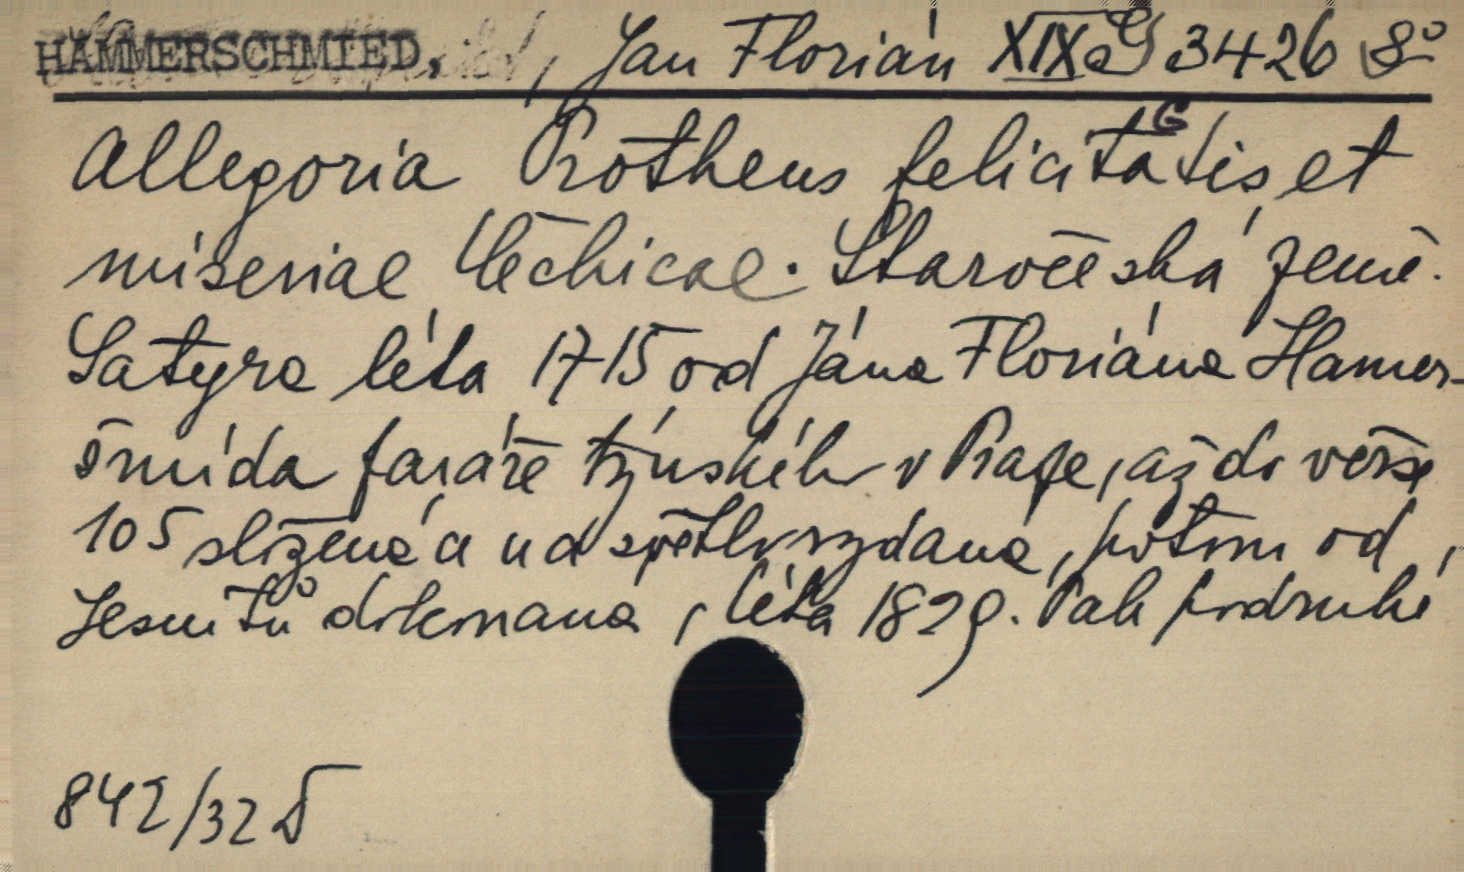 HAMMERSCHMIED, Jan Florián XIX G 3426 8°
G
Allegoria Protheus felicitatis et
miseriae Čechicae. Staročeská země.
Satyra léta 1715 od Jána Floriána Hamer-
šmída faráře týnského v Praze, až do verše
105 složená a na světlo vydaná, potom od
Jesuitů dokonaná, léta 1829. Pak podruhé
842/32 D